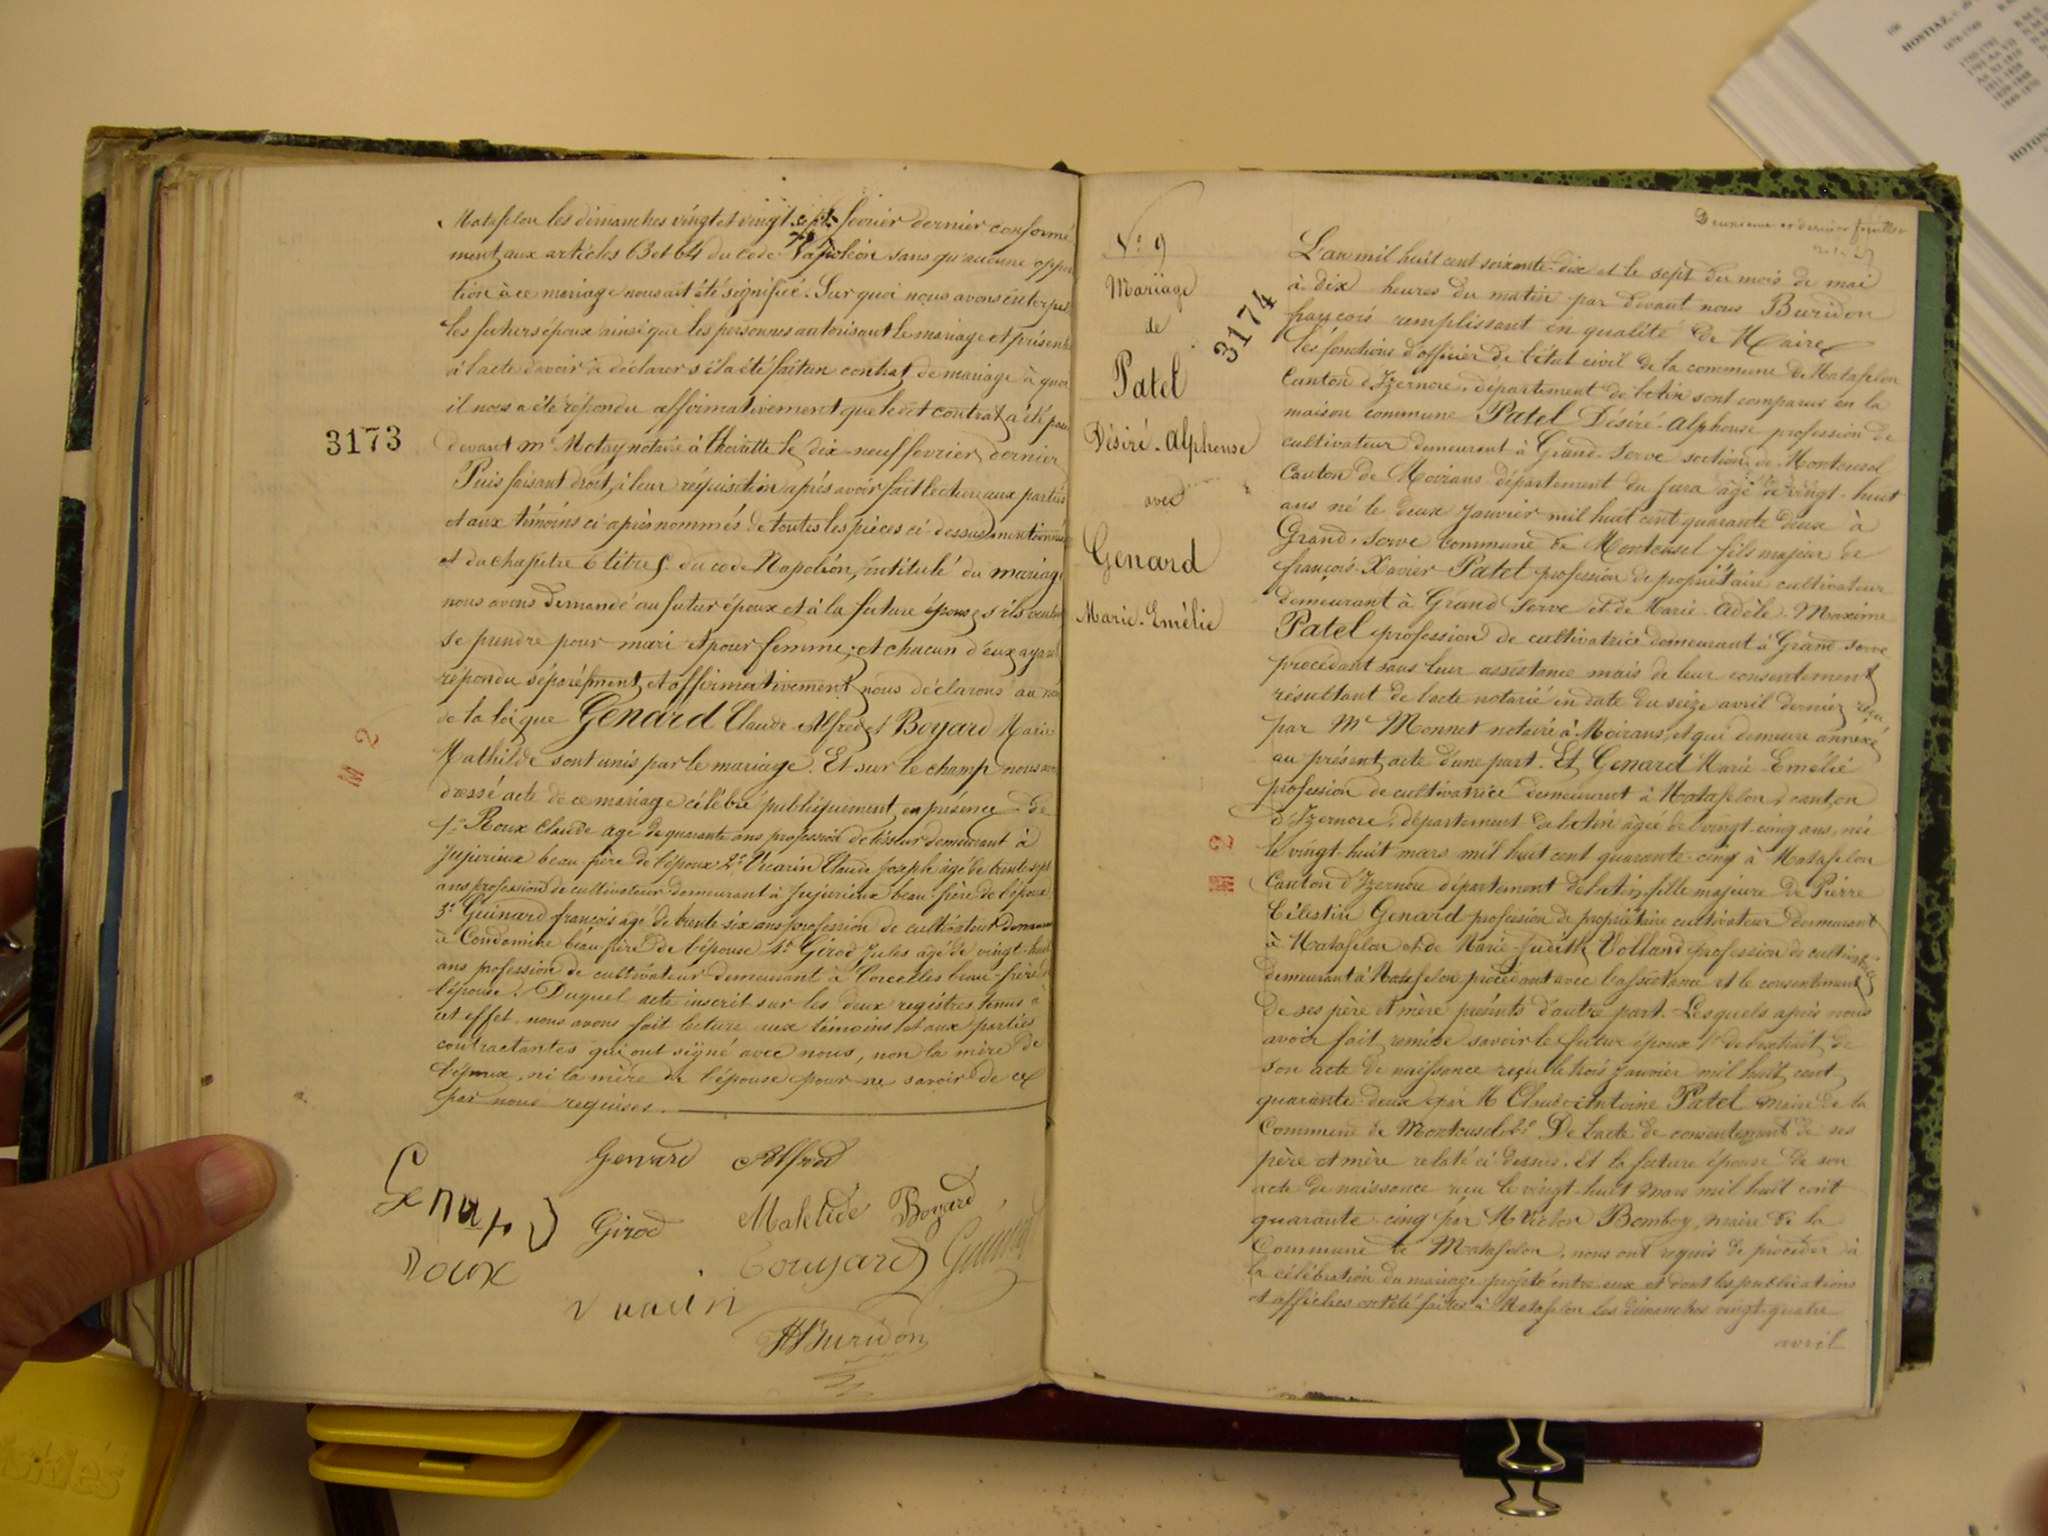 Matafelon les dimanches vingt et vingt sept février dernier conformé
ment aux articles 63 et 64 du Code Napoléon sans qu'aucune oppo
tion à ce mariage nous ait été signifiée. Sur quoi nous avons interpel
les futurs époux ainsi que les personnes autorisant le mariage et présente
à l'acte d'avoir à déclarer s'il a été fait un contrat de mariage à quoi
il nous a été répondu affirmativement que le dit contrat a été passé
3173
devant Me Motay notaire à Thoirette le dix-neuf février dernier
Puis faisant droit à leur réquisition après avoir fait lecture aux parties
et aux témoins ci-après nommés de toutes les pièces ci-dessus mentionnée
et du chapitre 6 titre 5 du code Napoléon, intitulé du mariage
nous avons demandé au futur époux et à la future épouse s'ils veulent
se prendre pour mari et pour femme, et chacun d'eux ayant
répondu séparément et affirmativement nous déclarons au nom
de la loi que Genard Claude Alfred et Boyard Marie
Mathilde sont unis par le mariage. Et sur le champ nous avons
dressé acte de ce mariage célébré publiquement en présence de
1o Roux Claude âgé de quarante ans profession de tisseur demeurant à
Jujurieux beau frère de l'époux 2o Vicarin Claude Joseph âgé de trente sept
ans profession de cultivateur demeurant à Jujurieux beau-frère de l'époux
3o Guinard françois âgé de trente six ans profession de cultivateur demeurant
à Condamine beau frère de l'épouse 4o Girod Jules âgé de vingt-huit
ans profession de cultivateur demeurant à Corcelles beau-frère de
l'épouse. Duquel acte inscrit sur les deux registres tenus à
cet effet nous avons fait lecture aux témoins et aux parties
contractantes qui ont signé avec nous, non la mère de
l'époux, ni la mère de l'épouse pour ne savoir de ce
par nous requises.
M 2
Genard Alfred
Genard Girod Mathilde Boyard
Roux Guinard
Buridon
Deuxième et dernier feuillet
No 9
Mariage
de
Patel
Désiré-Alphonse
avec
Genard
Marie-Emélie
3174
M 2
L'an mil huit cent soixante-dix et le sept du mois de mai
à dix heures du matin par devant nous Buridon
françois remplissant en qualité de Maire
les fonctions d'officier de l'état civil de la commune de Matafelon
Canton d'Izernore, département de l'Ain sont comparus en la
maison commune Patel Désiré-Alphonse profession de
cultivateur demeurant à Grand-Serve section de Montcusel
Canton de Moirans département du Jura âgé de vingt-huit
ans né le deux Janvier mil huit cent quarante deux à
Grand-Serve commune de Montcusel fils majeur de
françois-Xavier Patel profession de propriétaire cultivateur
demeurant à Grand Serve et de Marie-Adèle-Maxime
Patel profession de cultivatrice demeurant à Grand-Serve
procédant sans leur assistance mais de leur consentement
résultant de l'acte notarié en date du seize avril dernier reçu
par Me Monnet notaire à Moirans, et qui demeure annexé
au présent acte d'une part. Et Genard Marie-Emélie
profession de cultivatrice demeurant à Matafelon, canton
d'Izernore, département de l'Ain âgée de vingt-cinq ans, née
le vingt-huit mars mil huit cent quarante-cinq à Matafelon
Canton d'Izernore département de l'Ain, fille majeure de Pierre
Célestin Genard profession de propriétaire cultivateur demeurant
à Matafelon et de Marie-Judith Volland profession de cultivatrice
demeurant à Matafelon procédant avec l'assistance et le consentement
de ses père et mère présents d'autre part. Lesquels après nous
avoir fait remise savoir le futur époux 1o de l'extrait de
son acte de naissance reçu le trois Janvier mil huit cent
quarante-deux par M Claude-Antoine Patel maire de la
Commune de Montcusel 2o De l'acte de consentement de ses
père et mère relaté ci-dessus. Et la future épouse de son
acte de naissance reçu le vingt-huit Mars mil huit cent
quarante-cinq par M Victor Bomboy, maire de la
Commune de Matafelon, nous ont requis de procéder à
la célébration du mariage projeté entre eux et dont les publications
et affiches ont été faites à Matafelon les dimanches vingt-quatre
avril
HOSTIAZ